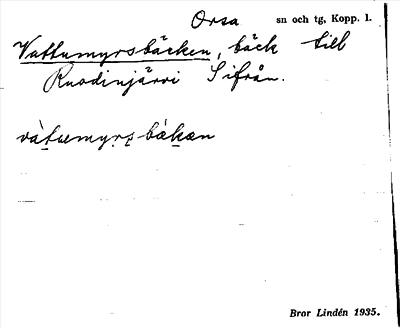 Orsa sn och tg, Kopp. l.
Vattumyrsbäcken, bäck till
Ruodinjärvi S ifrån.
vàtumyrs bákan
Bror Lindén 1935.